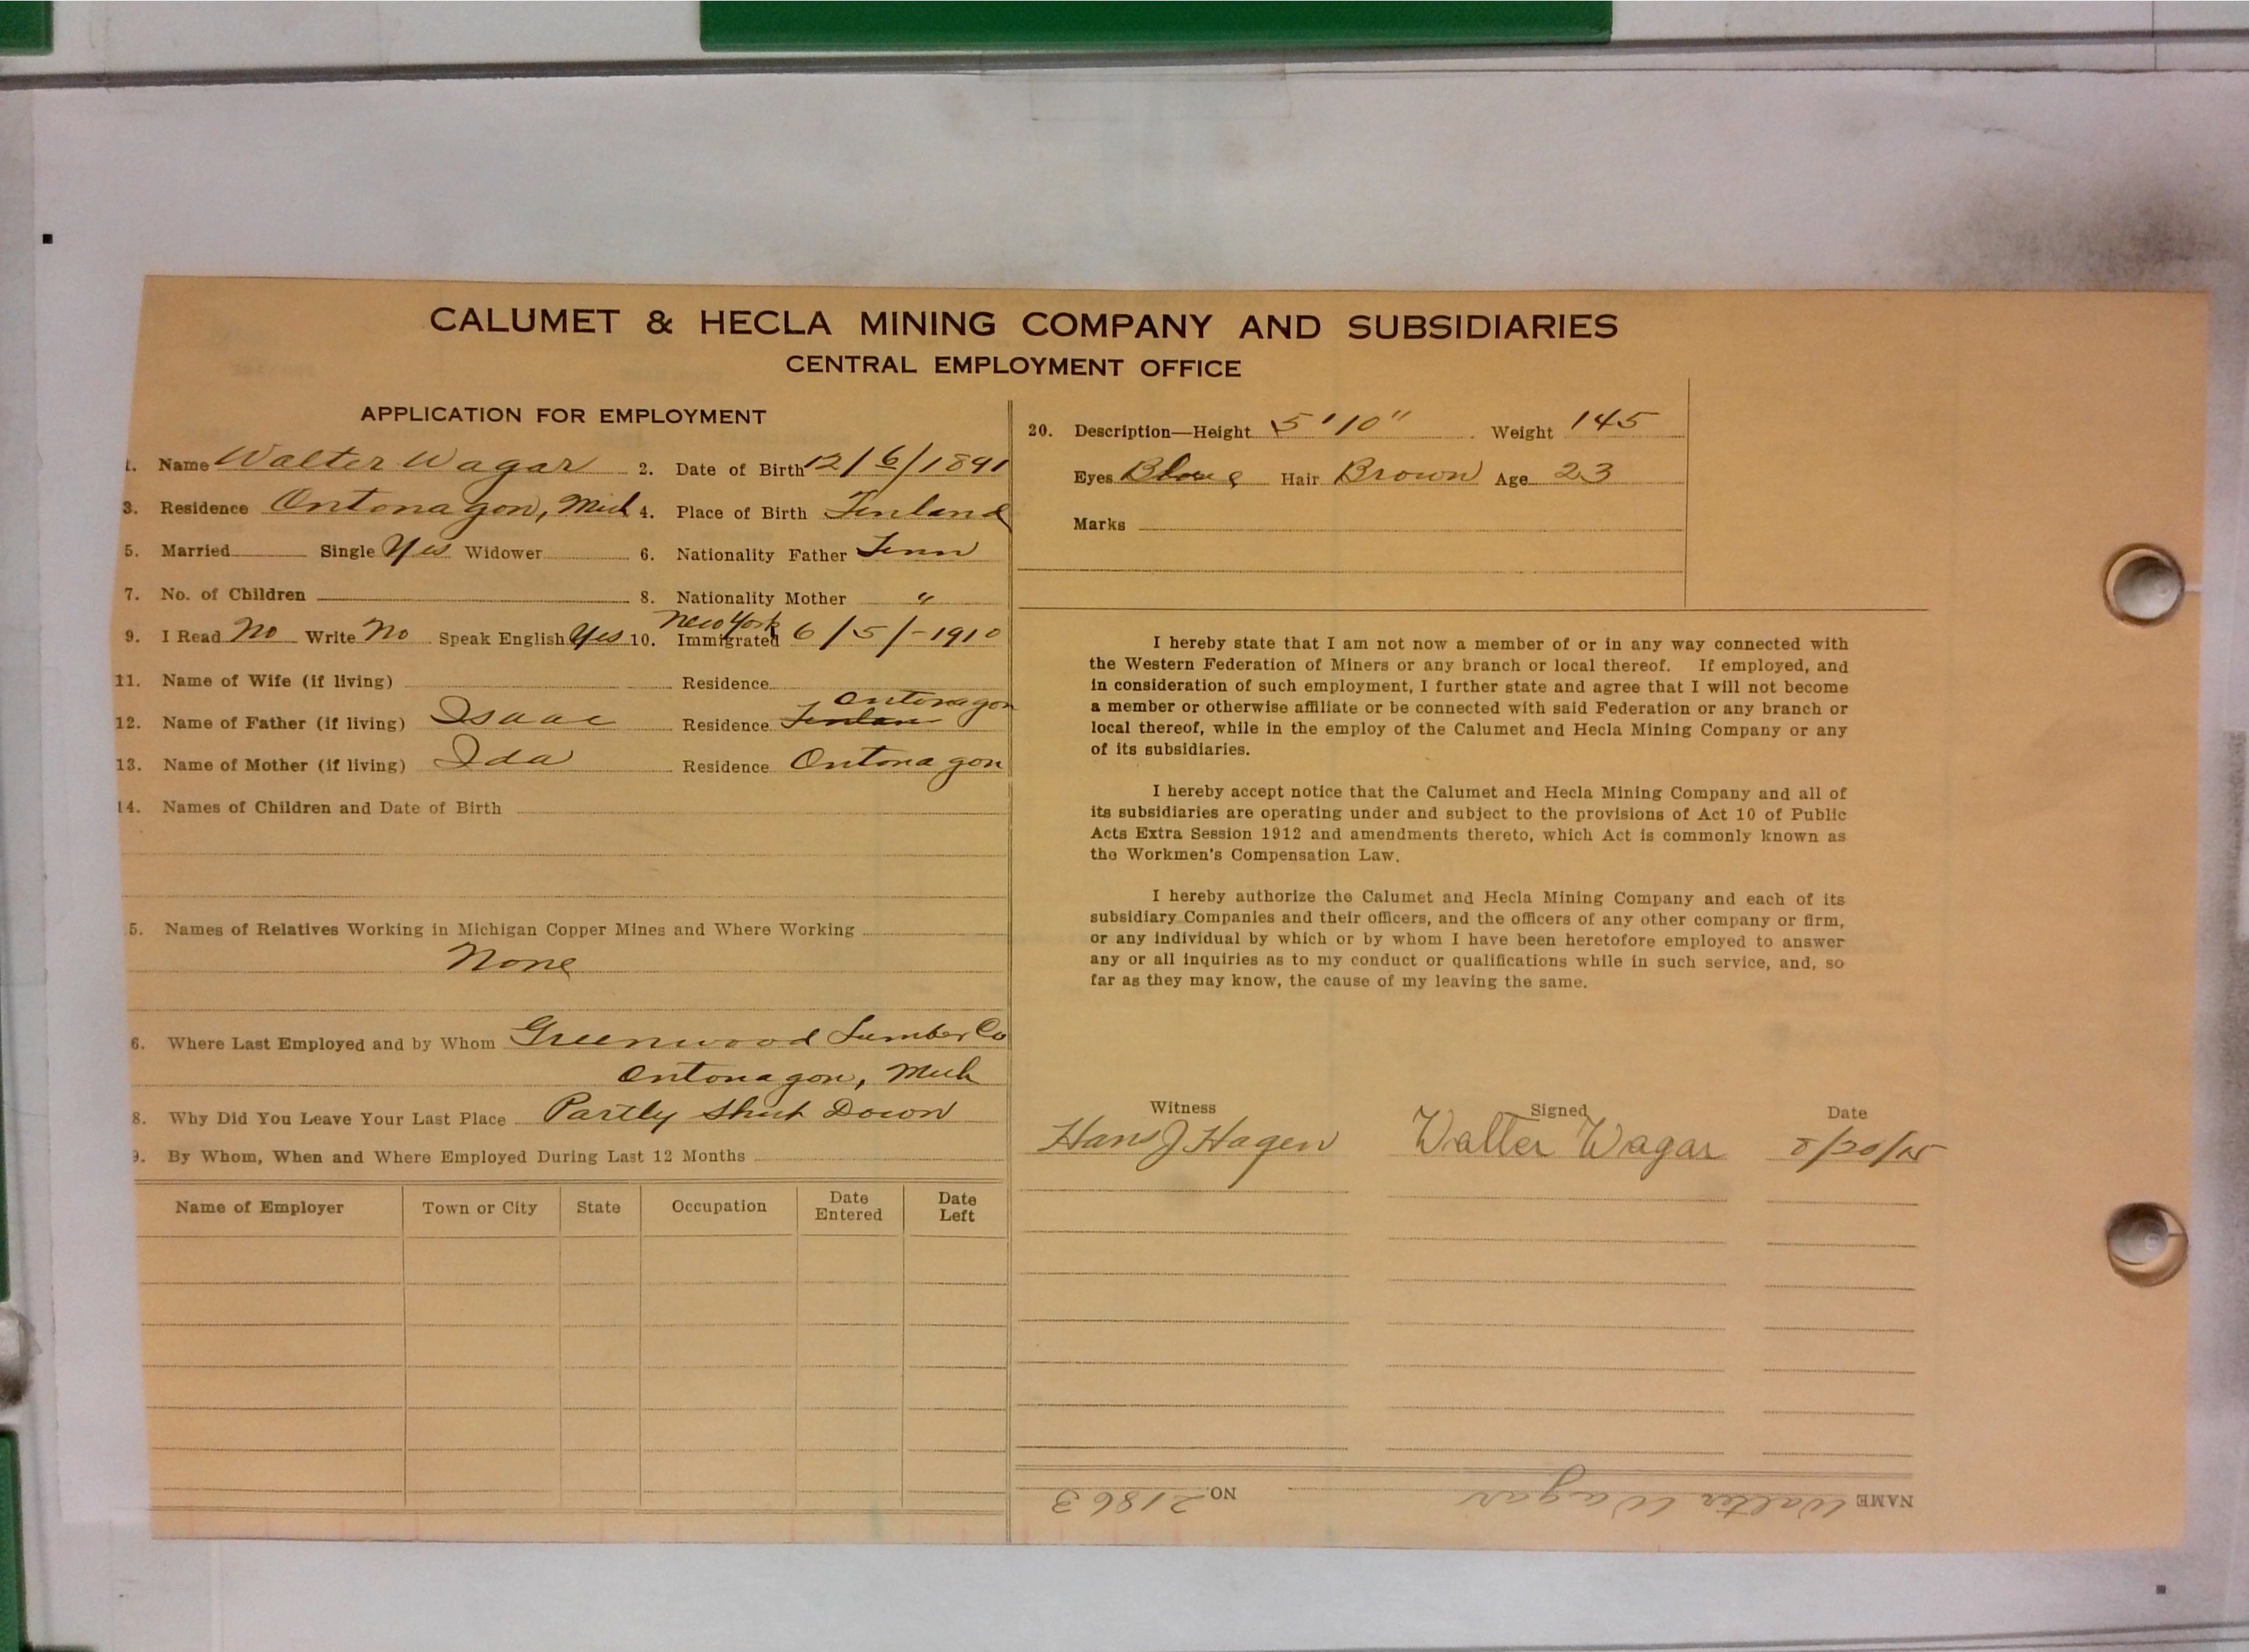 CALUMET & HECLA MINING COMPANY AND SUBSIDIARIES
CENTRAL EMPLOYMENT OFFICE
APPLICATION FOR EMPLOYMENT
1. Name Walter Wagar 2. Date of Birth 12/6/1891
3. Residence Ontonagon, Mich 4. Place of Birth Finland
5. Married Single Yes Widower 6. Nationality Father Finn
7. No. of Children 8. Nationality Mother "
New York
9. I Read No Write No Speak English Yes 10. Immigrated 6/5/-1910
11. Name of Wife (if living) Residence
Ontonagon
12. Name of Father (if living) Isaac Residence Finlan
13. Name of Mother (if living) Ida Residence Ontonagon
14. Names of Children and Date of Birth
5. Names of Relatives Working in Michigan Copper Mines and Where Working
None
6. Where Last Employed and by Whom Greenwood Lumber Co
Ontonagon, Mich
8. Why Did You Leave Your Last Place Partly Shut Down
9. By Whom, When and Where Employed During Last 12 Months
Name of Employer Town or City State Occupation Date Entered Date Left
20. Description—Height 5'10" Weight 145
Eyes Blue Hair Brown Age 23
Marks
I hereby state that I am not now a member of or in any way connected with
the Western Federation of Miners or any branch or local thereof. If employed, and
in consideration of such employment, I further state and agree that I will not become
a member or otherwise affiliate or be connected with said Federation or any branch or
local thereof, while in the employ of the Calumet and Hecla Mining Company or any
of its subsidiaries.
I hereby accept notice that the Calumet and Hecla Mining Company and all of
its subsidiaries are operating under and subject to the provisions of Act 10 of Public
Acts Extra Session 1912 and amendments thereto, which Act is commonly known as
the Workmen's Compensation Law.
I hereby authorize the Calumet and Hecla Mining Company and each of its
subsidiary Companies and their officers, and the officers of any other company or firm,
or any individual by which or by whom I have been heretofore employed to answer
any or all inquiries as to my conduct or qualifications while in such service, and, so
far as they may know, the cause of my leaving the same.
Witness Signed Date
Hans J Hagen Walter Wagar 8/20/15
NAME Walter Wagar NO. 21863